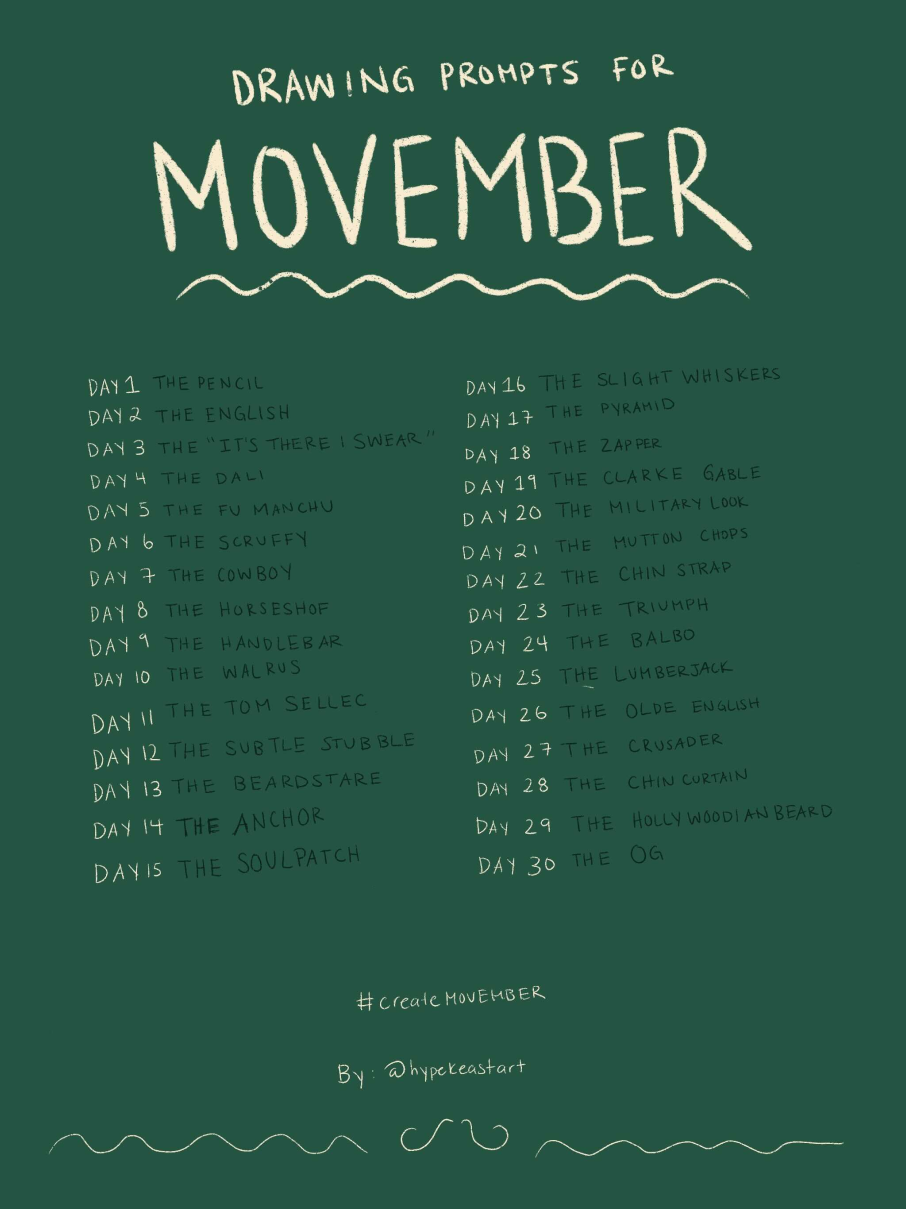 DRAWING PROMPTS FOR
MOVEMBER
DAY 1 THE PENCIL
DAY 2 THE ENGLISH
DAY 3 THE "IT'S THERE I SWEAR"
DAY 4 THE DALI
DAY 5 THE FU MANCHU
DAY 6 THE SCRUFFY
DAY 7 THE COWBOY
DAY 8 THE HORSESHOE
DAY 9 THE HANDLEBAR
DAY 10 THE WALRUS
DAY 11 THE TOM SELLEC
DAY 12 THE SUBTLE STUBBLE
DAY 13 THE BEARDSTARE
DAY 14 THE ANCHOR
DAY 15 THE SOULPATCH
DAY 16 THE SLIGHT WHISKERS
DAY 17 THE PYRAMID
DAY 18 THE ZAPPER
DAY 19 THE CLARKE GABLE
DAY 20 THE MILITARY LOOK
DAY 21 THE MUTTON CHOPS
DAY 22 THE CHIN STRAP
DAY 23 THE TRIUMPH
DAY 24 THE BALBO
DAY 25 THE LUMBERJACK
DAY 26 THE OLDE ENGLISH
DAY 27 THE CRUSADER
DAY 28 THE CHIN CURTAIN
DAY 29 THE HOLLYWOODIAN BEARD
DAY 30 THE OG
#createMOVEMBER
By: @hypekeastart